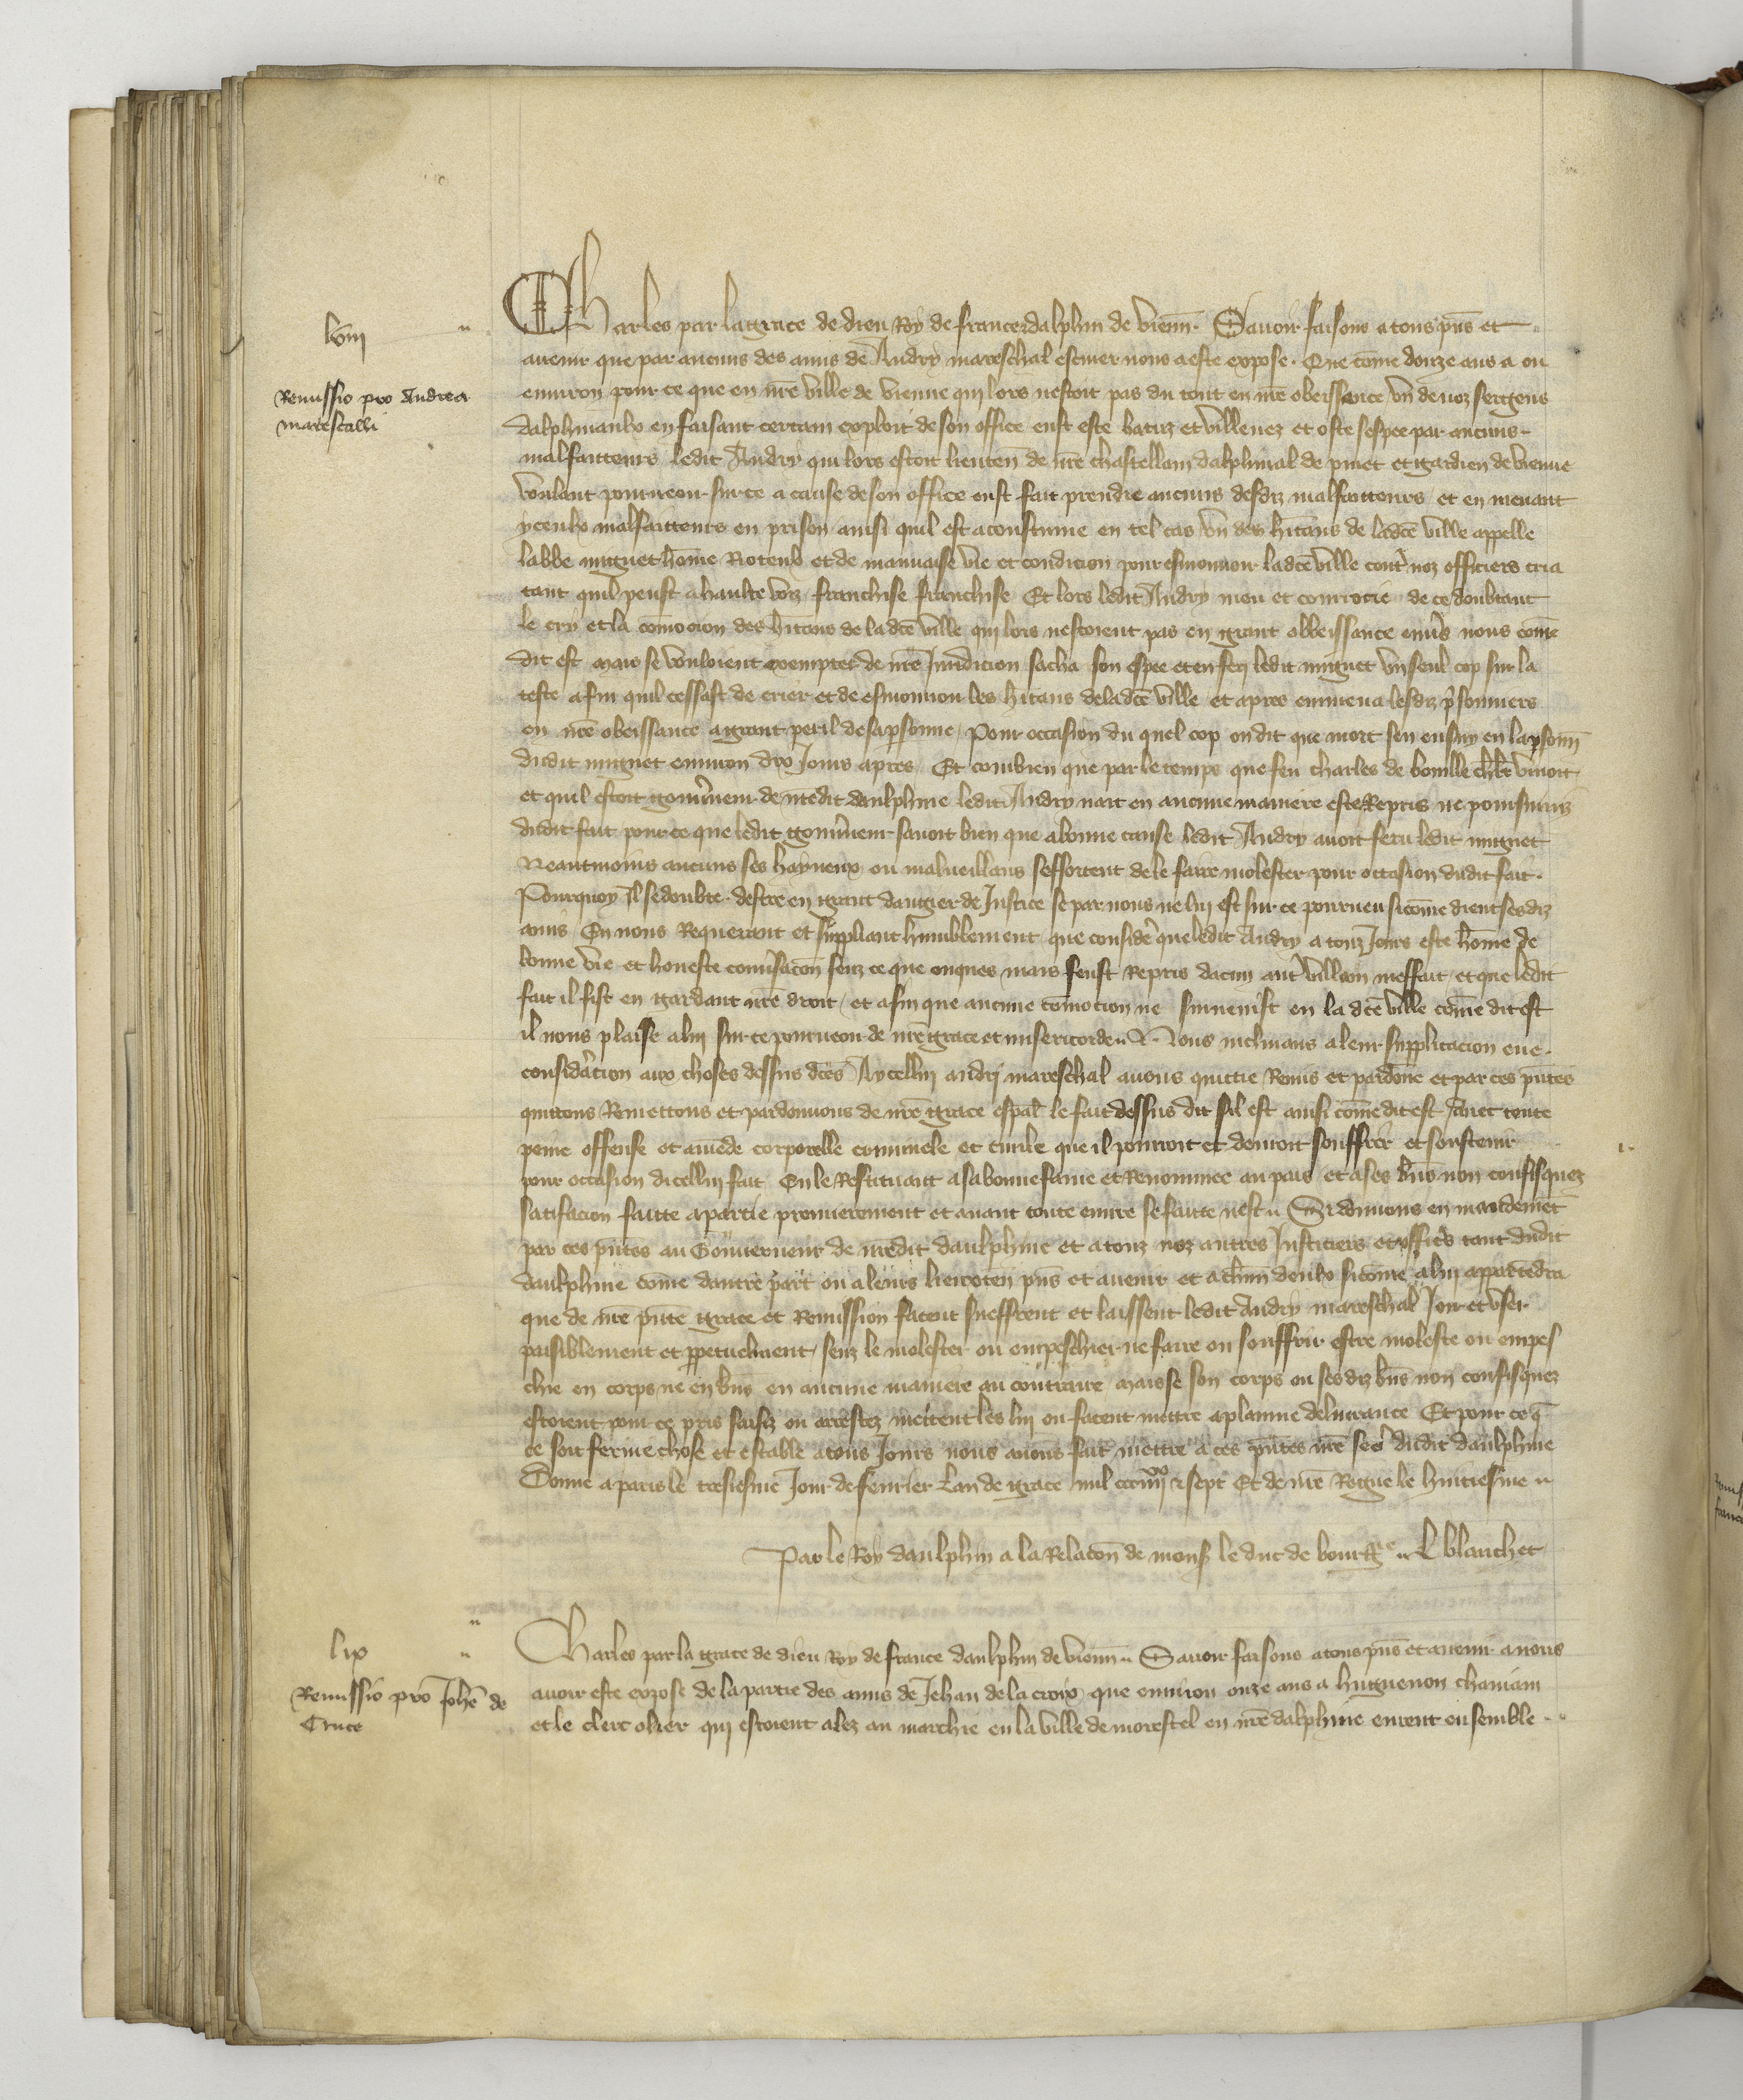 lviij
Remissio pro Andrea
marescalli
Charles par la grace de dieu Roy de france & dalphin de vienn. Savoir faisons a tous pns et
avenir que par aucuns des amis de Andry mareschal escuier nous a este expose. Que come douze ans a ou
environ pour ce que en nre ville de vienne qui lors nestoit pas du tout en nre obeissance vn de noz sergens
dalphinaulx en faisant certain exploit de son office eust este batuz et villenez et oste sespee par aucuns
malfaitteurs ledit Andry qui lors estoit lieuten de nre chastellain dalphinal de pinet et gardien de vienne
voulant pourveoir sur ce a cause de son office eust fait prendre aucuns desdiz malfaitteurs et en menant
yceulx malfaitteurs en prison ainsi quil est acoustume en tel cas vn des hitans de ladce ville appelle
labbe muguet home Roteux et de mauvaise vie et condicion pour esmouvoir ladce ville contre noz officiers cria
tant quil peust a haulte voiz franchise franchise Et lors ledit Andry meu et courrocie de ce doubtant
le cry et la comocion des hitans de la dce ville qui lors nestoient pas en grant obbeissance envers nous come
dit est mais se vouloient exempter de nre Juridicion sacha son espee et en feri ledit muguet vn seul cop sur la
teste afin quil cessast de crier et de esmouvoir les hitans de ladce ville et apres emmena lesdiz prisonniers
en nre obeissance a grant peril de sa personne Pour occasion du quel cop on dit que mort sen ensuy en la personn
dudit muguet environ dix Jours apres Et combien que par le temps que feu charles de boville chlr vivoit
et quil estoit gouverneur de nredit daulphine ledit Andry nait en aucune maniere este Repris ne poursuiviz
dudit fait pour ce que ledit gouverneur savoit bien que a bonne cause ledit Andry avoit feru ledit muguet
Neantmoins aucuns ses hayneux ou malveillans sefforcent de le faire molester pour occasion dudit fait.
Pourquoy il se doubte destre en grant dangier de Justice se par nous ne lui est sur ce pourveu sicome dient sesdiz
amis En nous Requerant et suppliant humblement que consider que ledit Andry a touz Jours este home de
bonne vie et honeste conversacon senz ce que onques mais feust Repris dacun autre villain meffait et que ledit
fait il fist en gardant nre droit et afin que aucune comocion ne survenist en la dce ville come dit est
il nous plaise a lui sur ce pourveoir de nre grace et misericorde Nous inclinans a leur supplicacion eue
consideracion aux choses dessus dces Aycellui andry mareschal avons quittie Remis et pardone et par ces pntes
quittons Remettons et pardonnons de nre grace espal le fait dessus dit sil est ainsi come dit est Avec toute
peine offense et amede corporelle criminele et civile que il pourroit et devroit souffrir et soustenir
pour occasion dicellui fait En le Restituant a sa bonne fame et Renommee au pais et a ses bns non confisquez
satifacion faitte a partie premierement et avant toute euvre se faitte nest Si donnons en mandemet
par ces pntes au Gouverneur de nredit daulphine et a touz noz autres Justiciers et officrs tant dudit
daulphine come dautre part ou a leurs lieuxten pns et avenir et a chun deulx sicome a lui appartedra
que de nre pnte grace et Remission facent sueffrent et laissent ledit Andry mareschal Joir et vser
paisiblement et ppetuelment senz le molester ou empeschier ne faire ou souffrir estre moleste ou empes
chie en corps ne en bns en aucune maniere au contraire mais se son corps ou sesdiz bns non confisquez
estoient pour ce pris saisiz ou arrestez mettent les lui ou facent mettre a plainne delivrance Et pour ce q
ce soit ferme chose et estable a tous Jours nous avons fait mettre a ces pntes nre seel dudit daulphine
Donne a paris le tresiesme Jour de fevrier Lan de grace mil ccc iiiixx & sept Et de nre Regne le huitiesme
Par le Roy daulphin a la Relacon de mons le duc de bourgge L blanchet
lix
Remissio pro Johe de
Cruce
Charles par la grace de dieu Roy de france daulphin de vienn Savoir faisons a tous pns et avenir a nous
avoir este expose de la partie des amis de Jehan de la croix que environ onze ans a huguenon chaniam
et le clerc olier qui estoient alez au marchie en la ville de morestel en nre dalphine eurent ensemble